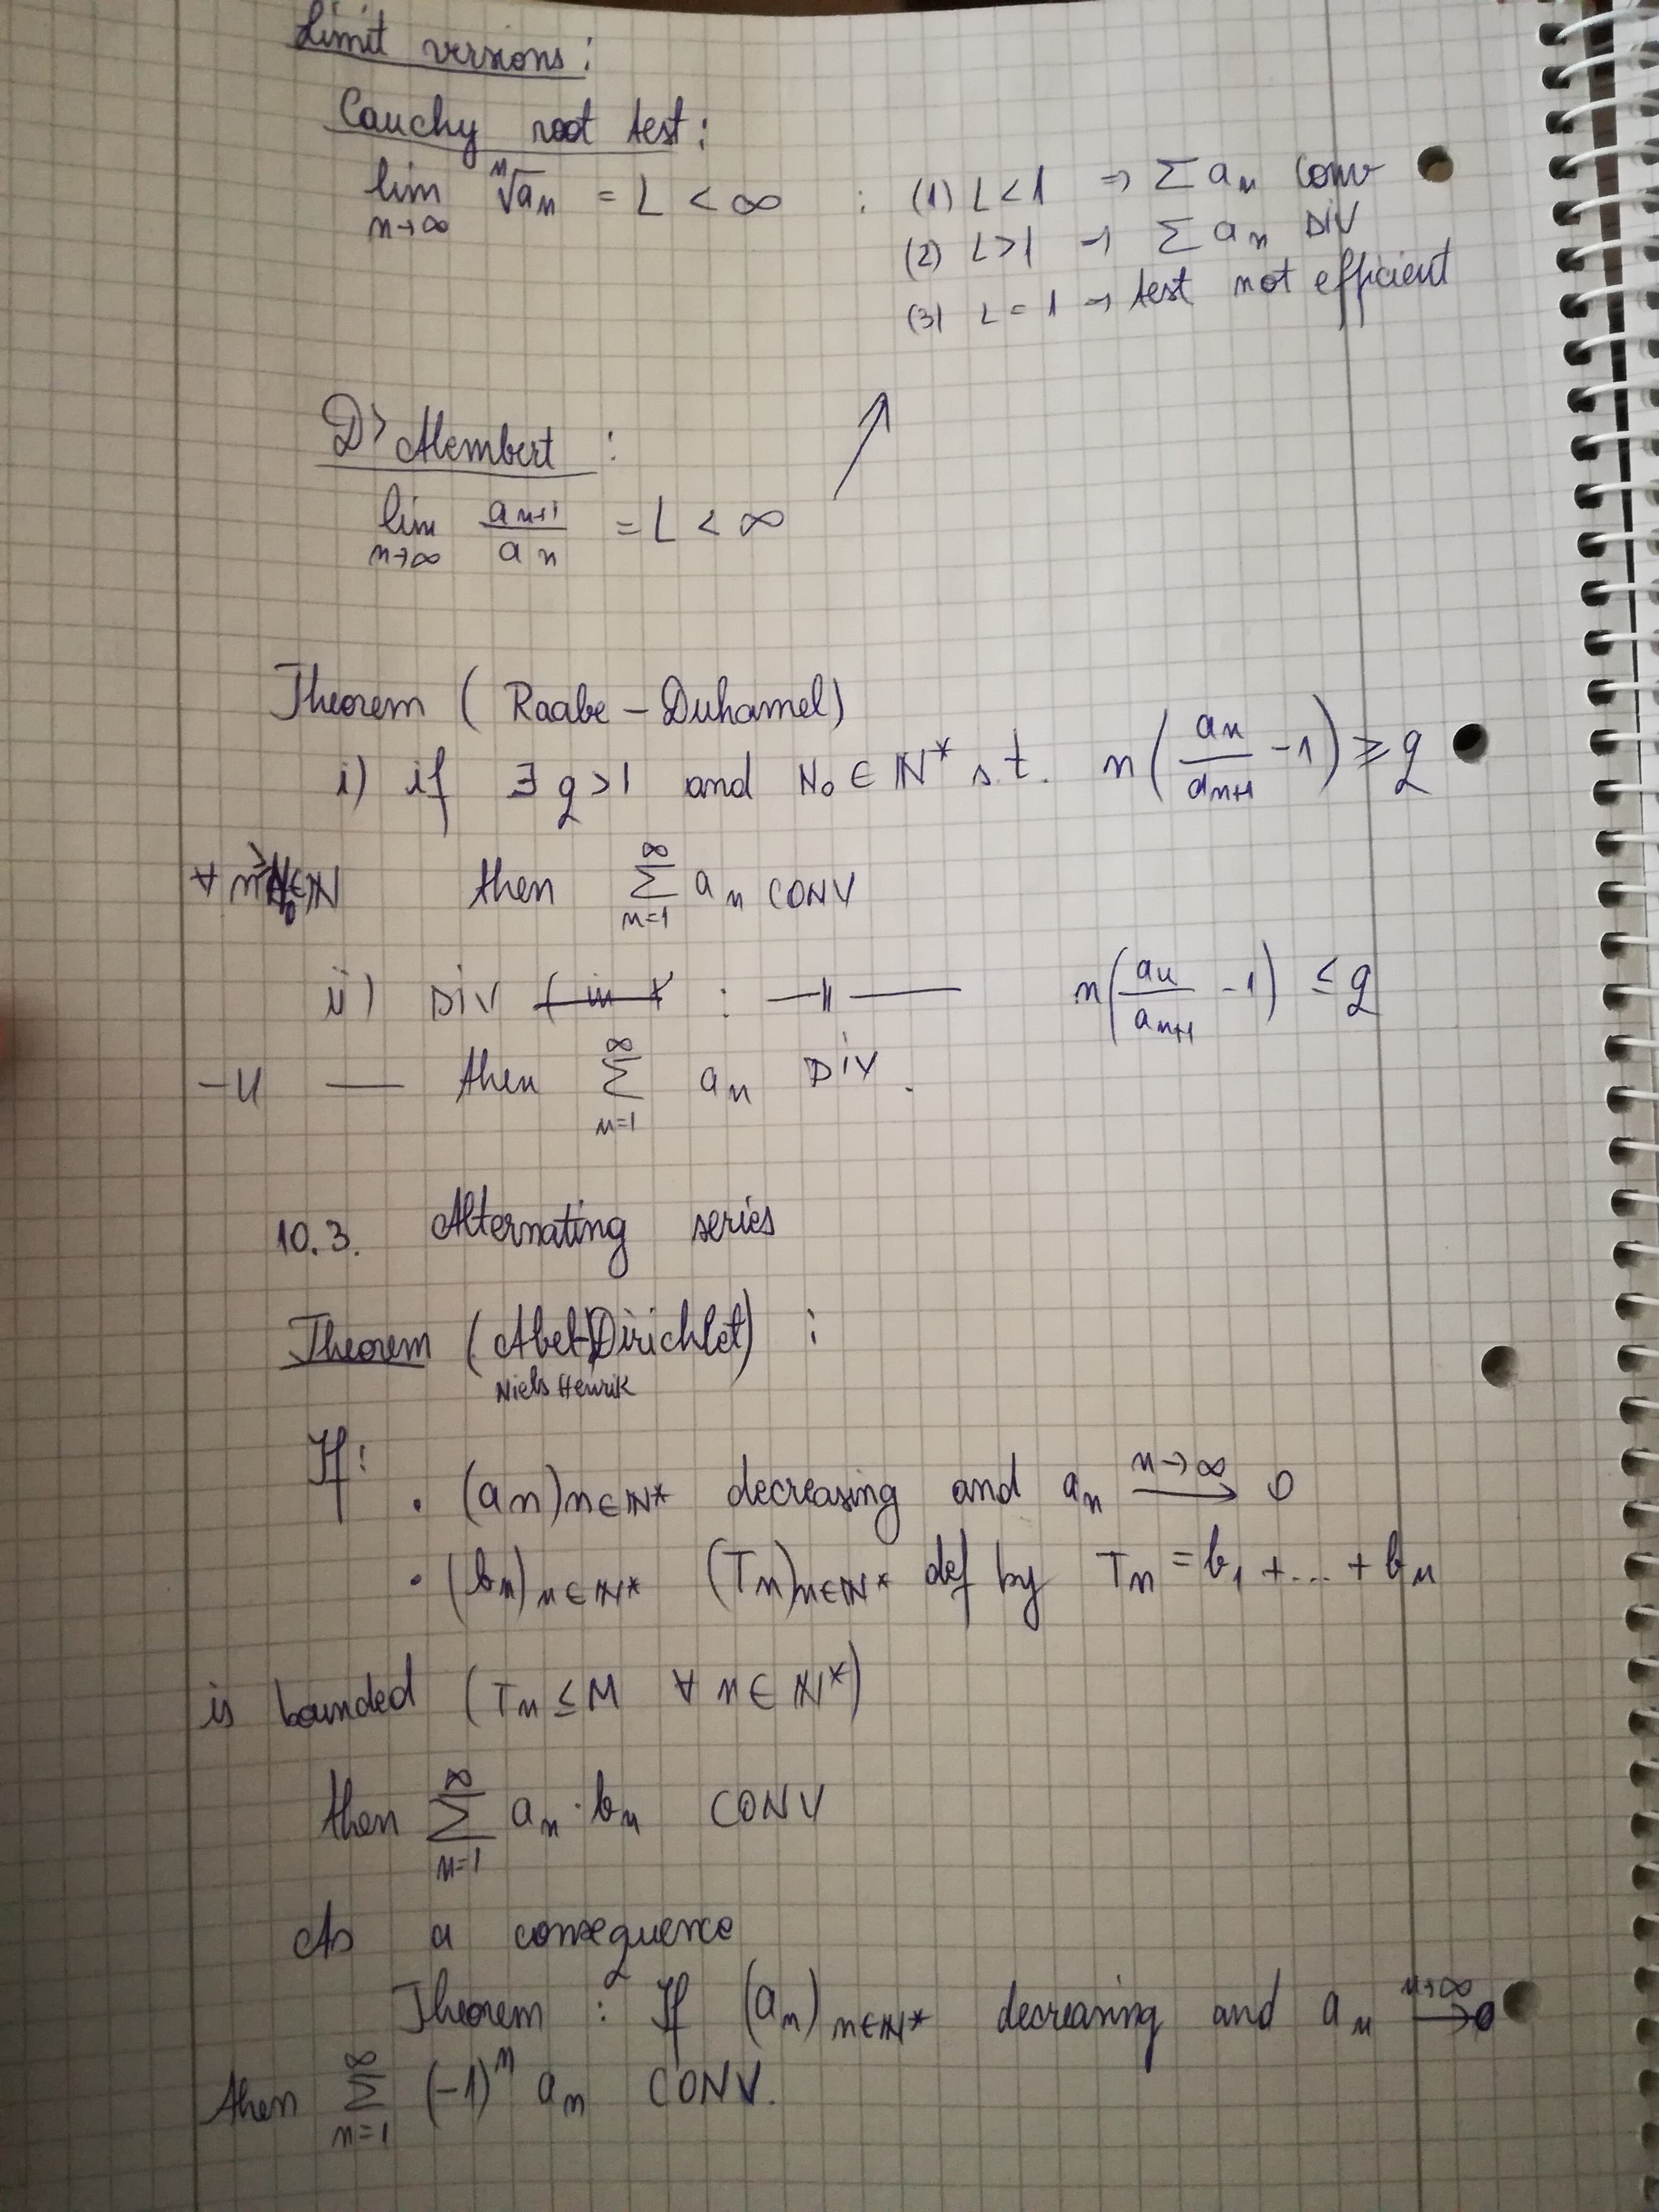 Limit versions:
Cauchy root test:
lim n→∞ ⁿ√an = L < ∞ : (1) L<1 ⇒ Σ an conv
(2) L>1 → Σ an DIV
(3) L=1 → test not efficient
D'Alembert:
lim n→∞ an+1/an = L < ∞
Theorem (Raabe-Duhamel)
i) if ∃ q>1 and N0 ∈ N* s.t. n(an/an+1 -1) ≥ q
∀ n≥N0 then Σ n=1 ∞ an CONV
ii) DIV : —||— n(an/an+1 -1) ≤ q
—||— then Σ n=1 ∞ an DIV.
10.3. Alternating series
Theorem (Abel-Dirichlet):
Niels Henrik
If:
• (an)n∈N* decreasing and an n→∞ → 0
• (bn)n∈N* (Tn)n∈N* def by Tn = b1 + ... + bn
is bounded (Tn ≤ M ∀ n ∈ N*)
then Σ n=1 ∞ an · bn CONV
As a consequence
Theorem: If (an)n∈N* decreasing and an n→∞ → 0
then Σ n=1 ∞ (-1)ⁿ an CONV.